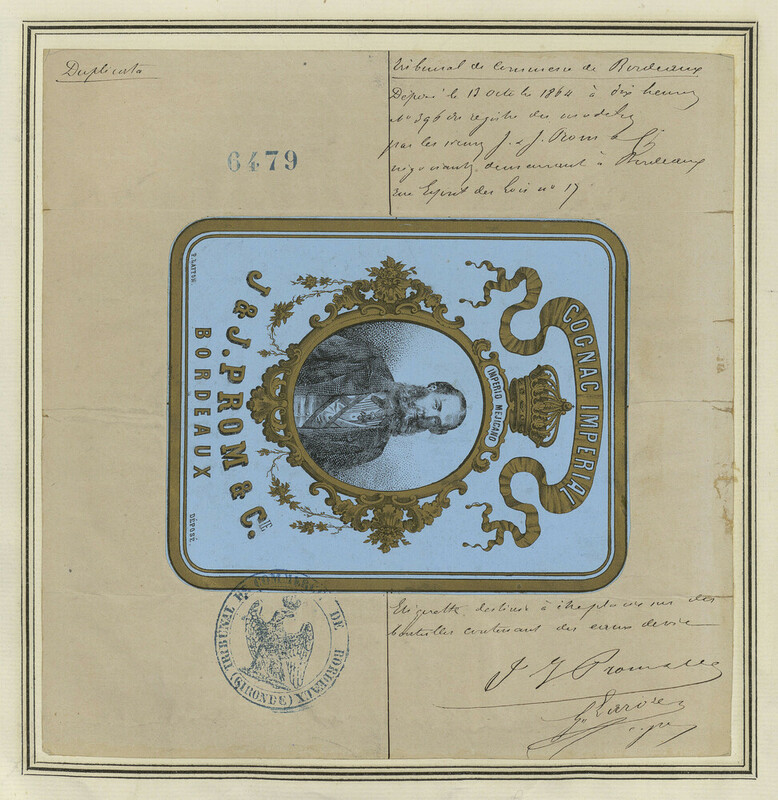 Duplicata
6479
Tribunal de Commerce de Bordeaux
Déposé le 13 octobre 1864 à dix heures
N° 396 du registre des modèles
par les sieurs J. & J. Prom & Cie
négociants demeurant à Bordeaux
rue Esprit des Lois n° 17
COGNAC IMPERIAL
IMPERIO MEJICANO
J. & J. PROM & CIE.
BORDEAUX
DÉPOSÉ.
TRIBUNAL DE COMMERCE DE BORDEAUX
(GIRONDE)
Etiquette destinée à être placée sur des
bouteilles contenant des eaux de vie
J J Prom & Cie